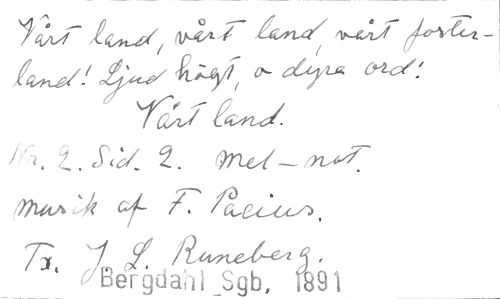 Vårt land, vårt land, vårt foster-
land! Ljud högt, o dyra ord!
Vårt land.
Nr. 2. Sid. 2. mel-not.
musik af F. Pacius.
Tx. J. L. Runeberg.
Bergdahl Sgb, 1891